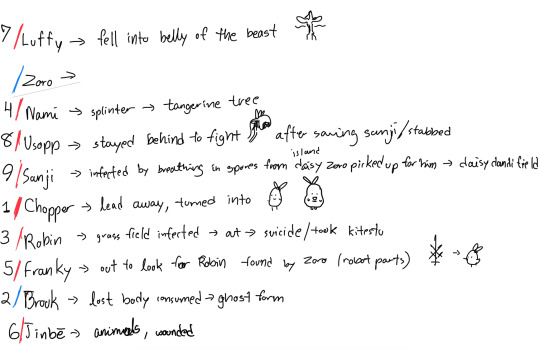 7/Luffy → fell into belly of the beast
/Zoro →
4/Nami → splinter → tangerine tree
8/Usopp → stayed behind to fight after saving sunji/stabbed
island
9/Sanji → infected by breathing in spores from daisy zoro picked up for him → daisy dandi field
1/Chopper → lead away, turned into
3/Robin → grass field infected → cut → suicide/took
5/Franky → out to look for Robin found by Zoro (robot parts)
2/Brook → lost body consumed → ghost form
6/Jinbē → animals, wounded